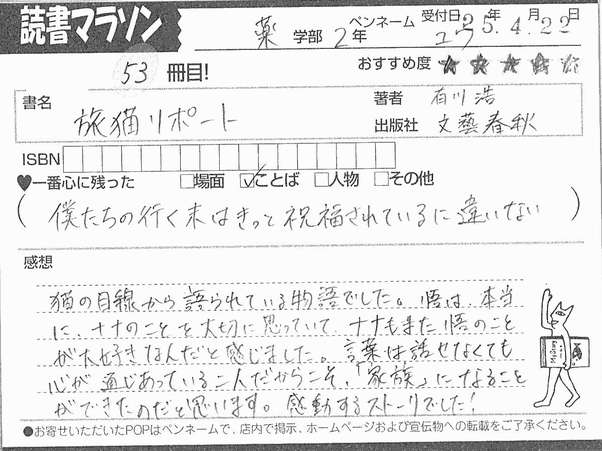 読書マラソン
薬 学部 2年 ペンネーム ユウ 受付日 25年 4月 22日
53 冊目! おすすめ度 ★★★★☆
書名 旅猫リポート 著者 有川浩
出版社 文藝春秋
ISBN
♥一番心に残った □場面 ☑ことば □人物 □その他
(僕たちの行く末はきっと祝福されているに違いない)
感想
猫の目線から語られている物語でした。悟は、本当
に、ナナのことを大切に思っていて、ナナもまた悟のこと
が大好きなんだと感じました。言葉は話せなくても
心が通じあっている二人だからこそ、「家族」になること
ができたのだと思います。感動するストーリでした!
●お寄せいただいたPOPはペンネームで、店内で掲示、ホームページおよび宣伝物への転載をご了承ください。